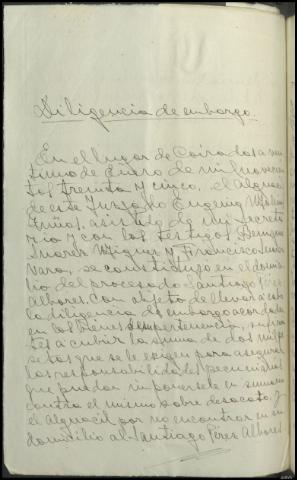 Diligencia de embargo.
En el lugar de Coirados a veu
timo de Enero de mil novecien
tos treinta y cinco, el Alguacil
de este Juzgado Eugenio
Eriños, asistido de mi Secreta
rio y con los testigos Benigno
Suarez Miguez y Francisco
Vara, se constituyó en el domici
lio del procesado Santiago Pérez
Albores. Con objeto de llevar a cabo
la diligencia de embargo acordada
en los bienes de su pertenencia, suficien
tes a cubrir la suma de dos mil pe
setas que se le exigen para asegurar
las responsabilidades pecuniarias
que puedan imponersele en sumario
contra el mismo sobre desacato, y
el Alguacil por no encontrar en su
domicilio al Santiago Pérez Albores